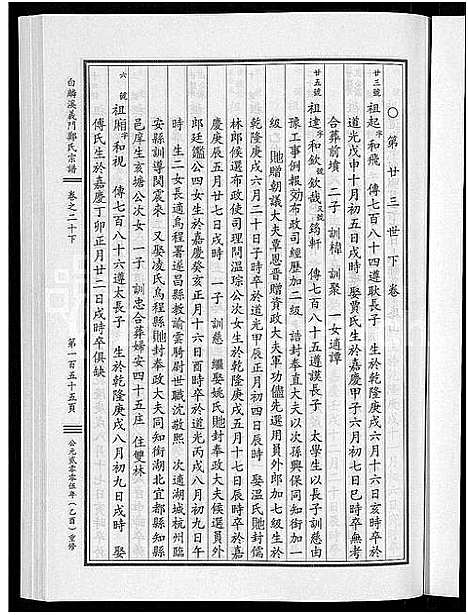 ○第廿三世下卷
廿三號 祖起 字和飛 傳七百八十四遵耿長子 生於乾隆庚戌六月十六日亥時卒於
道光戊申十月初五日戌時 娶賈氏生於嘉慶甲子六月初七日巳時卒與考
合葬前墳 二子 訓樟 訓聚 一女適譚
廿五號 祖達 字和欽 欽哉 又號筠軒 傳七百八十五遵謨長子 太學生以長子訓慈由
豫工事例報効布政司經歷加二級 誥封奉直大夫以次孫興保同知銜加一
級 貤贈朝議大夫章恩晉贈資政大夫軍功儘先選用員外郎加七級生於
乾隆庚戌六月二十日子時卒於道光甲辰正月初四日辰時 娶溫氏貤封儒
林郎候選布政使司理問溫琮公次女生於乾隆庚戌五月十七日辰時卒於嘉
慶庚辰五月廿七日戌時 一子 訓慈 繼娶姚氏貤封奉政大夫候選員外
郎廷鑑公四女生於嘉慶癸亥正月十六日酉時卒於道光丙戌八月初九日午
時 生二女長適烏程署遂昌縣教諭雲騎尉世職沈敬熙 次適湖城杭州臨
安縣訓導閔震來 又娶凌氏烏程縣貤封奉政大夫同知銜湖北宜都縣知縣
邑庠生亥塘公次女 一子 訓忠合葬婦安四十五庄 住雙林
六號 祖厢 字和視 傳七百八十六遵太長子 生於乾隆庚戌八月初九日戌時 娶
傅氏生於嘉慶丁卯正月廿二日戌時卒俱缺
白麟溪義門鄭氏宗譜
卷之二十下
第一百五十五頁
公元貳零零伍年(乙酉)重修